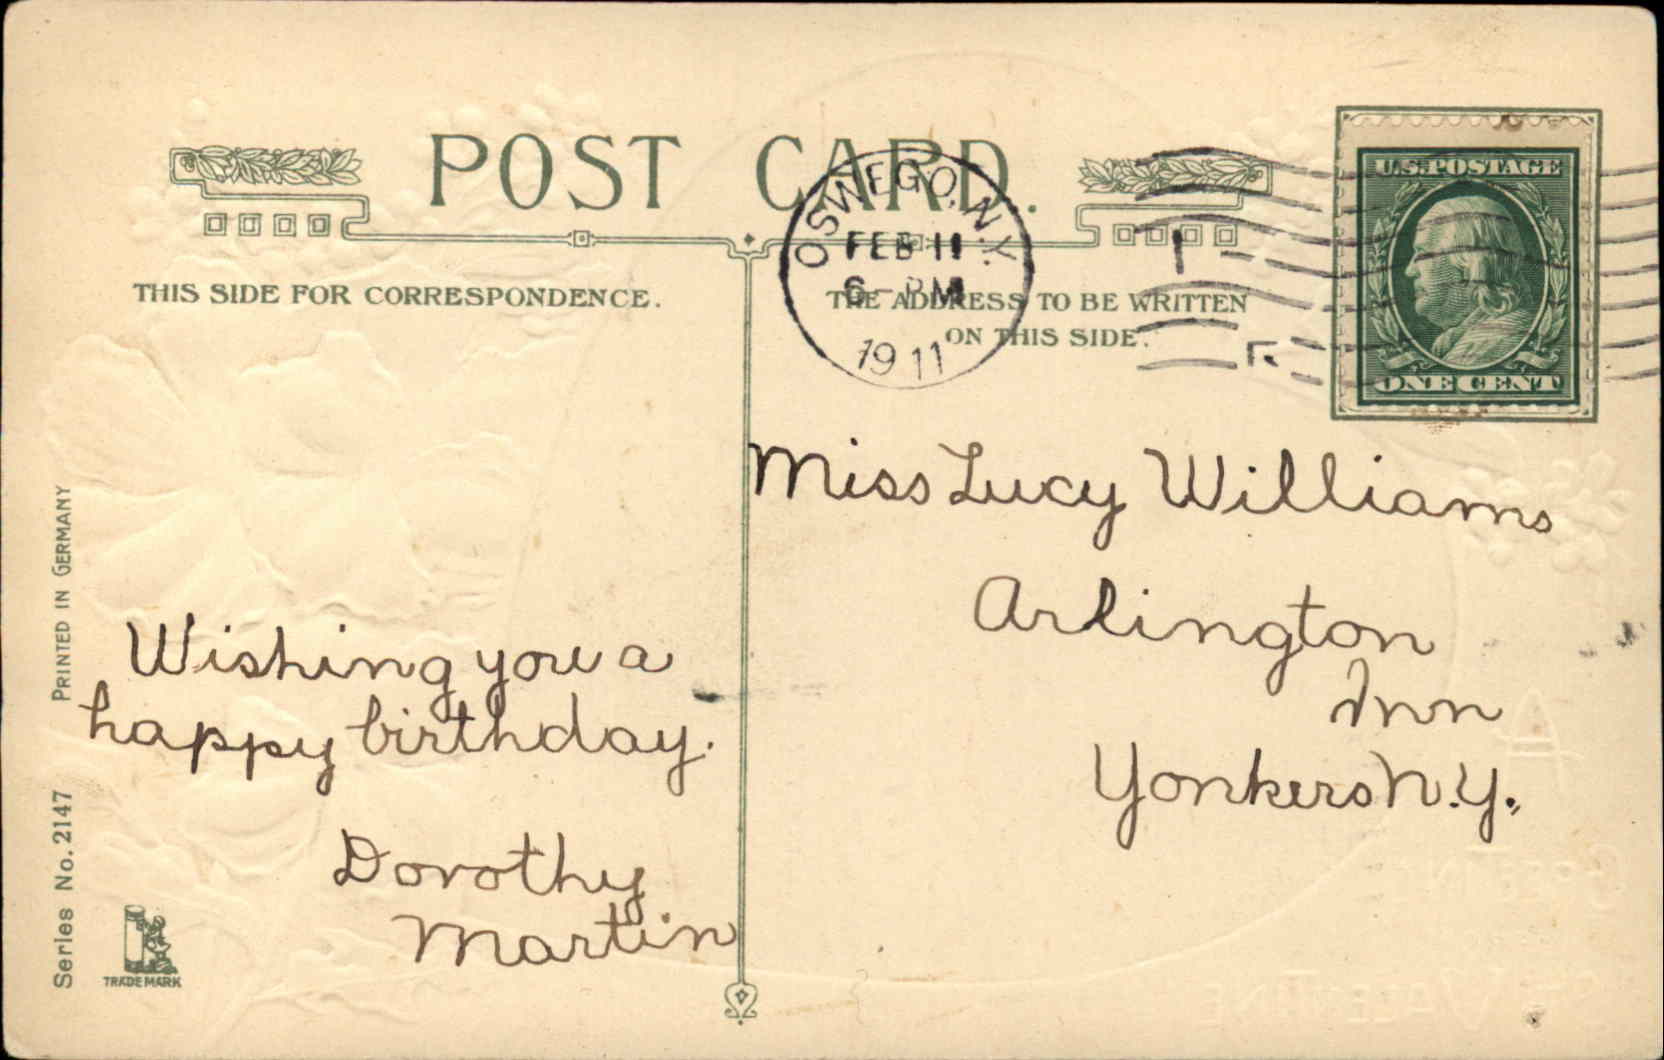 POST CARD.
THIS SIDE FOR CORRESPONDENCE.
THE ADDRESS TO BE WRITTEN
ON THIS SIDE.
OSWEGO, N.Y.
FEB 11
6 - PM
1911
U.S. POSTAGE
ONE CENT
Miss Lucy Williams
Arlington
Inn
Yonkers N.Y.
Wishing you a
happy birthday.
Dorothy
Martin
PRINTED IN GERMANY
Series No. 2147
TRADE MARK
A
GREETING
ST. VALENTINE